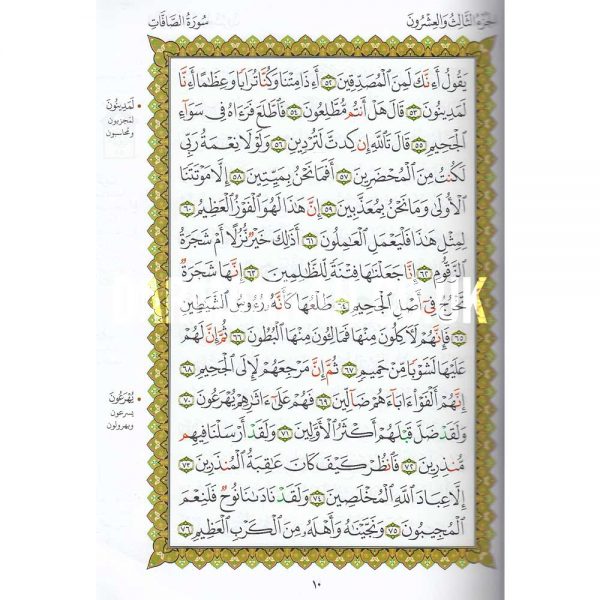 الجزء الثالث والعشرون
سورة الصافات
يَقُولُ أَءِنَّكَ لَمِنَ الْمُصَدِّقِينَ ٥٢ أَءِذَا مِتْنَا وَكُنَّا تُرَابًا وَعِظَامًا أَءِنَّا
لَمَدِينُونَ ٥٣ قَالَ هَلْ أَنتُم مُّطَّلِعُونَ ٥٤ فَاطَّلَعَ فَرَءَاهُ فِي سَوَاءِ
الْجَحِيمِ ٥٥ قَالَ تَاللَّهِ إِن كِدتَّ لَتُرْدِينِ ٥٦ وَلَوْلَا نِعْمَةُ رَبِّي
لَكُنتُ مِنَ الْمُحْضَرِينَ ٥٧ أَفَمَا نَحْنُ بِمَيِّتِينَ ٥٨ إِلَّا مَوْتَتَنَا
الْأُولَىٰ وَمَا نَحْنُ بِمُعَذَّبِينَ ٥٩ إِنَّ هَٰذَا لَهُوَ الْفَوْزُ الْعَظِيمُ ٦٠
لِمِثْلِ هَٰذَا فَلْيَعْمَلِ الْعَامِلُونَ ٦١ أَذَٰلِكَ خَيْرٌ نُّزُلًا أَمْ شَجَرَةُ
الزَّقُّومِ ٦٢ إِنَّا جَعَلْنَاهَا فِتْنَةً لِّلظَّالِمِينَ ٦٣ إِنَّهَا شَجَرَةٌ
تَخْرُجُ فِي أَصْلِ الْجَحِيمِ ٦٤ طَلْعُهَا كَأَنَّهُ رُءُوسُ الشَّيَاطِينِ
٦٥ فَإِنَّهُمْ لَآكِلُونَ مِنْهَا فَمَالِئُونَ مِنْهَا الْبُطُونَ ٦٦ ثُمَّ إِنَّ لَهُمْ
عَلَيْهَا لَشَوْبًا مِّنْ حَمِيمٍ ٦٧ ثُمَّ إِنَّ مَرْجِعَهُمْ لَإِلَى الْجَحِيمِ ٦٨
إِنَّهُمْ أَلْفَوْا ءَابَاءَهُمْ ضَالِّينَ ٦٩ فَهُمْ عَلَىٰ ءَاثَارِهِمْ يُهْرَعُونَ ٧٠
وَلَقَدْ ضَلَّ قَبْلَهُمْ أَكْثَرُ الْأَوَّلِينَ ٧١ وَلَقَدْ أَرْسَلْنَا فِيهِم
مُّنذِرِينَ ٧٢ فَانظُرْ كَيْفَ كَانَ عَاقِبَةُ الْمُنذَرِينَ ٧٣
إِلَّا عِبَادَ اللَّهِ الْمُخْلَصِينَ ٧٤ وَلَقَدْ نَادَانَا نُوحٌ فَلَنِعْمَ
الْمُجِيبُونَ ٧٥ وَنَجَّيْنَاهُ وَأَهْلَهُ مِنَ الْكَرْبِ الْعَظِيمِ ٧٦
• لَمَدِينُونَ
لمجزيون
ومحاسبون
• يُهْرَعُونَ
يسرعون
ويهرولون
١٠